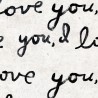 love you,
e you, I lo
love you,